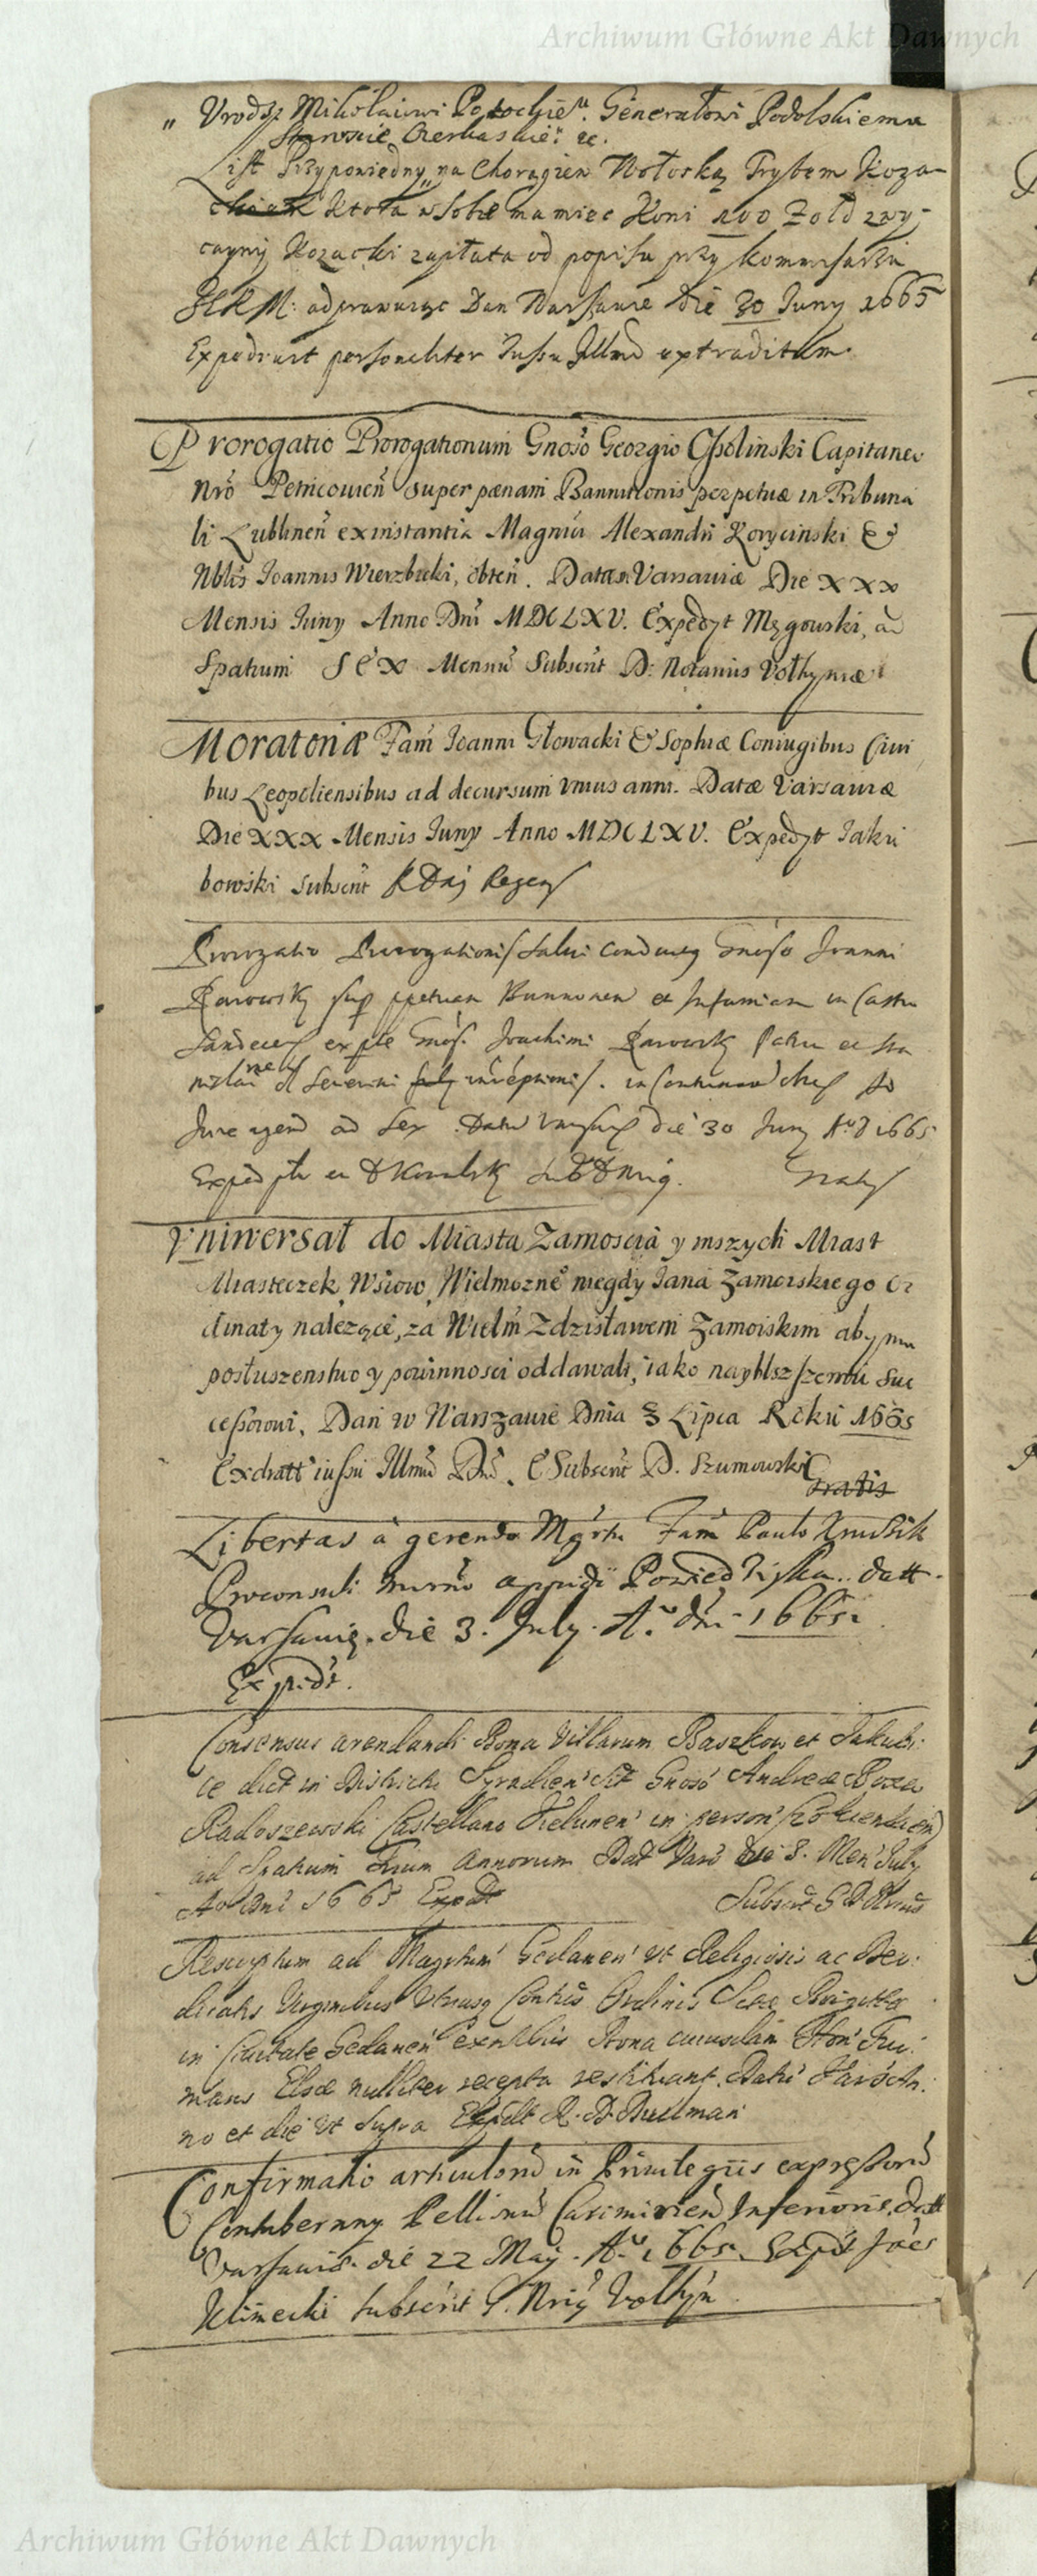 Archiwum Główne Akt Dawnych
„ Vrodz. Mikołaiowi Potockiem̃. Generałowi Podolskiemu
Staroscie Czerkaskie: &c.
List Przypowiedny na Chorągiew Wołoską Trybem Koza-
ckim ktora w sobie ma miec Koni 100 Zołd zwy-
czayny Kozacki zapłata od popisu przy Kommissarzu
JKM: odprawuiąc Dan Warszawie Die 30 Juny 1665
Expediuit personaliter Jussu Illmi extraditum.
Prorogatio Prorogationum Gnoso Georgio Ossolinski Capitaneo
Nro Petricouien super pœnam Bannitionis perpetuæ in Tribuna
li Lublinen ex instantia Magnici Alexandri Korycinski &
Nblis Joannis Wierzbicki, obten. Datæ Varsauiæ Die XXX
Mensis Juny Anno Dni MDCLXV. Expedyt Męgowski, ad
Spatium SEX Mensiu Subscrit D: Notarius Vołhyniæ
Moratoriæ Fam Joanni Głowacki & Sophiæ Coniugibus Ciui
bus Leopoliensibus ad decursum vnius anni. Datæ Varsauiæ
Die XXX Mensis Juny Anno MDCLXV. Expedyt Jaku
bowski subscrit RDnj Regens
Prorogatio Prorogationis salui conductus Gnoso Joanni
Rarowsky sup ppetuam Bannonem et Infamiam in Castro
Sandecen ex pte Gnos. Joachimi Rarowsky Patris et Sta
nislai
Jure agend ad Sex. Datu Varsauiæ die 30 Juny A° D 1665
Expedyt D Kowalsky Gratis
Vniwersał do Miasta Zamoscia y inszych Miast
Miasteczek, Wsiow, Wielmozne° niegdy Jana Zamoiskiego Or
dinaty nalezące, za Wielm Zdzisławem Zamoiskim aby mu
posłuszenstwo y powinnosci oddawali, iako naybliszszemu Suc
cessorowi. Dan w Warszawie Dnia 3 Lipca Roku 1665
Extradtt iussu Illmi Dni. Subscrit D. Szumowski
Gratis
Libertas a gerendo Mgrtu Fam Paulo Krussik
Proconsuli nostro oppidi Powiedziska. datt.
Varsauię. die 3. July. A° dni 1665.
Expedt.
Consensus arendandi Bona Villarum Baszkow et Jakubi:
ce dict in Districtu Syradien sit Gnoso Andreæ Boxa
Radoszewski Castellano Vielunen in person
ad Spatium trium Annorum Dat Vars die 3. Men July
A° Dni 1665 Expdt Subscrit
Rescriptum ad Magrtum Gedanen vt Religiosis ac Deo:
dicatis Virginibus vtriusq Conuus Ordinis Sctæ Brigittæ
in Ciuitate Gedanen exntibus Bona cuiusdam Hon
Elsæ nulliter recepta restituant. Datu Vars An:
no et die vt supra Expdt R. D. Bullman
Confirmatio articulorũ in Priuilegiis expressorũ
Contubernny Pellionũ Casimirien Inferioris. datt
Varsauię. die 22 May. A° 1665. Expdt Joes
Klimecki subscrit S. Nriq Vołhyn
Archiwum Główne Akt Dawnych